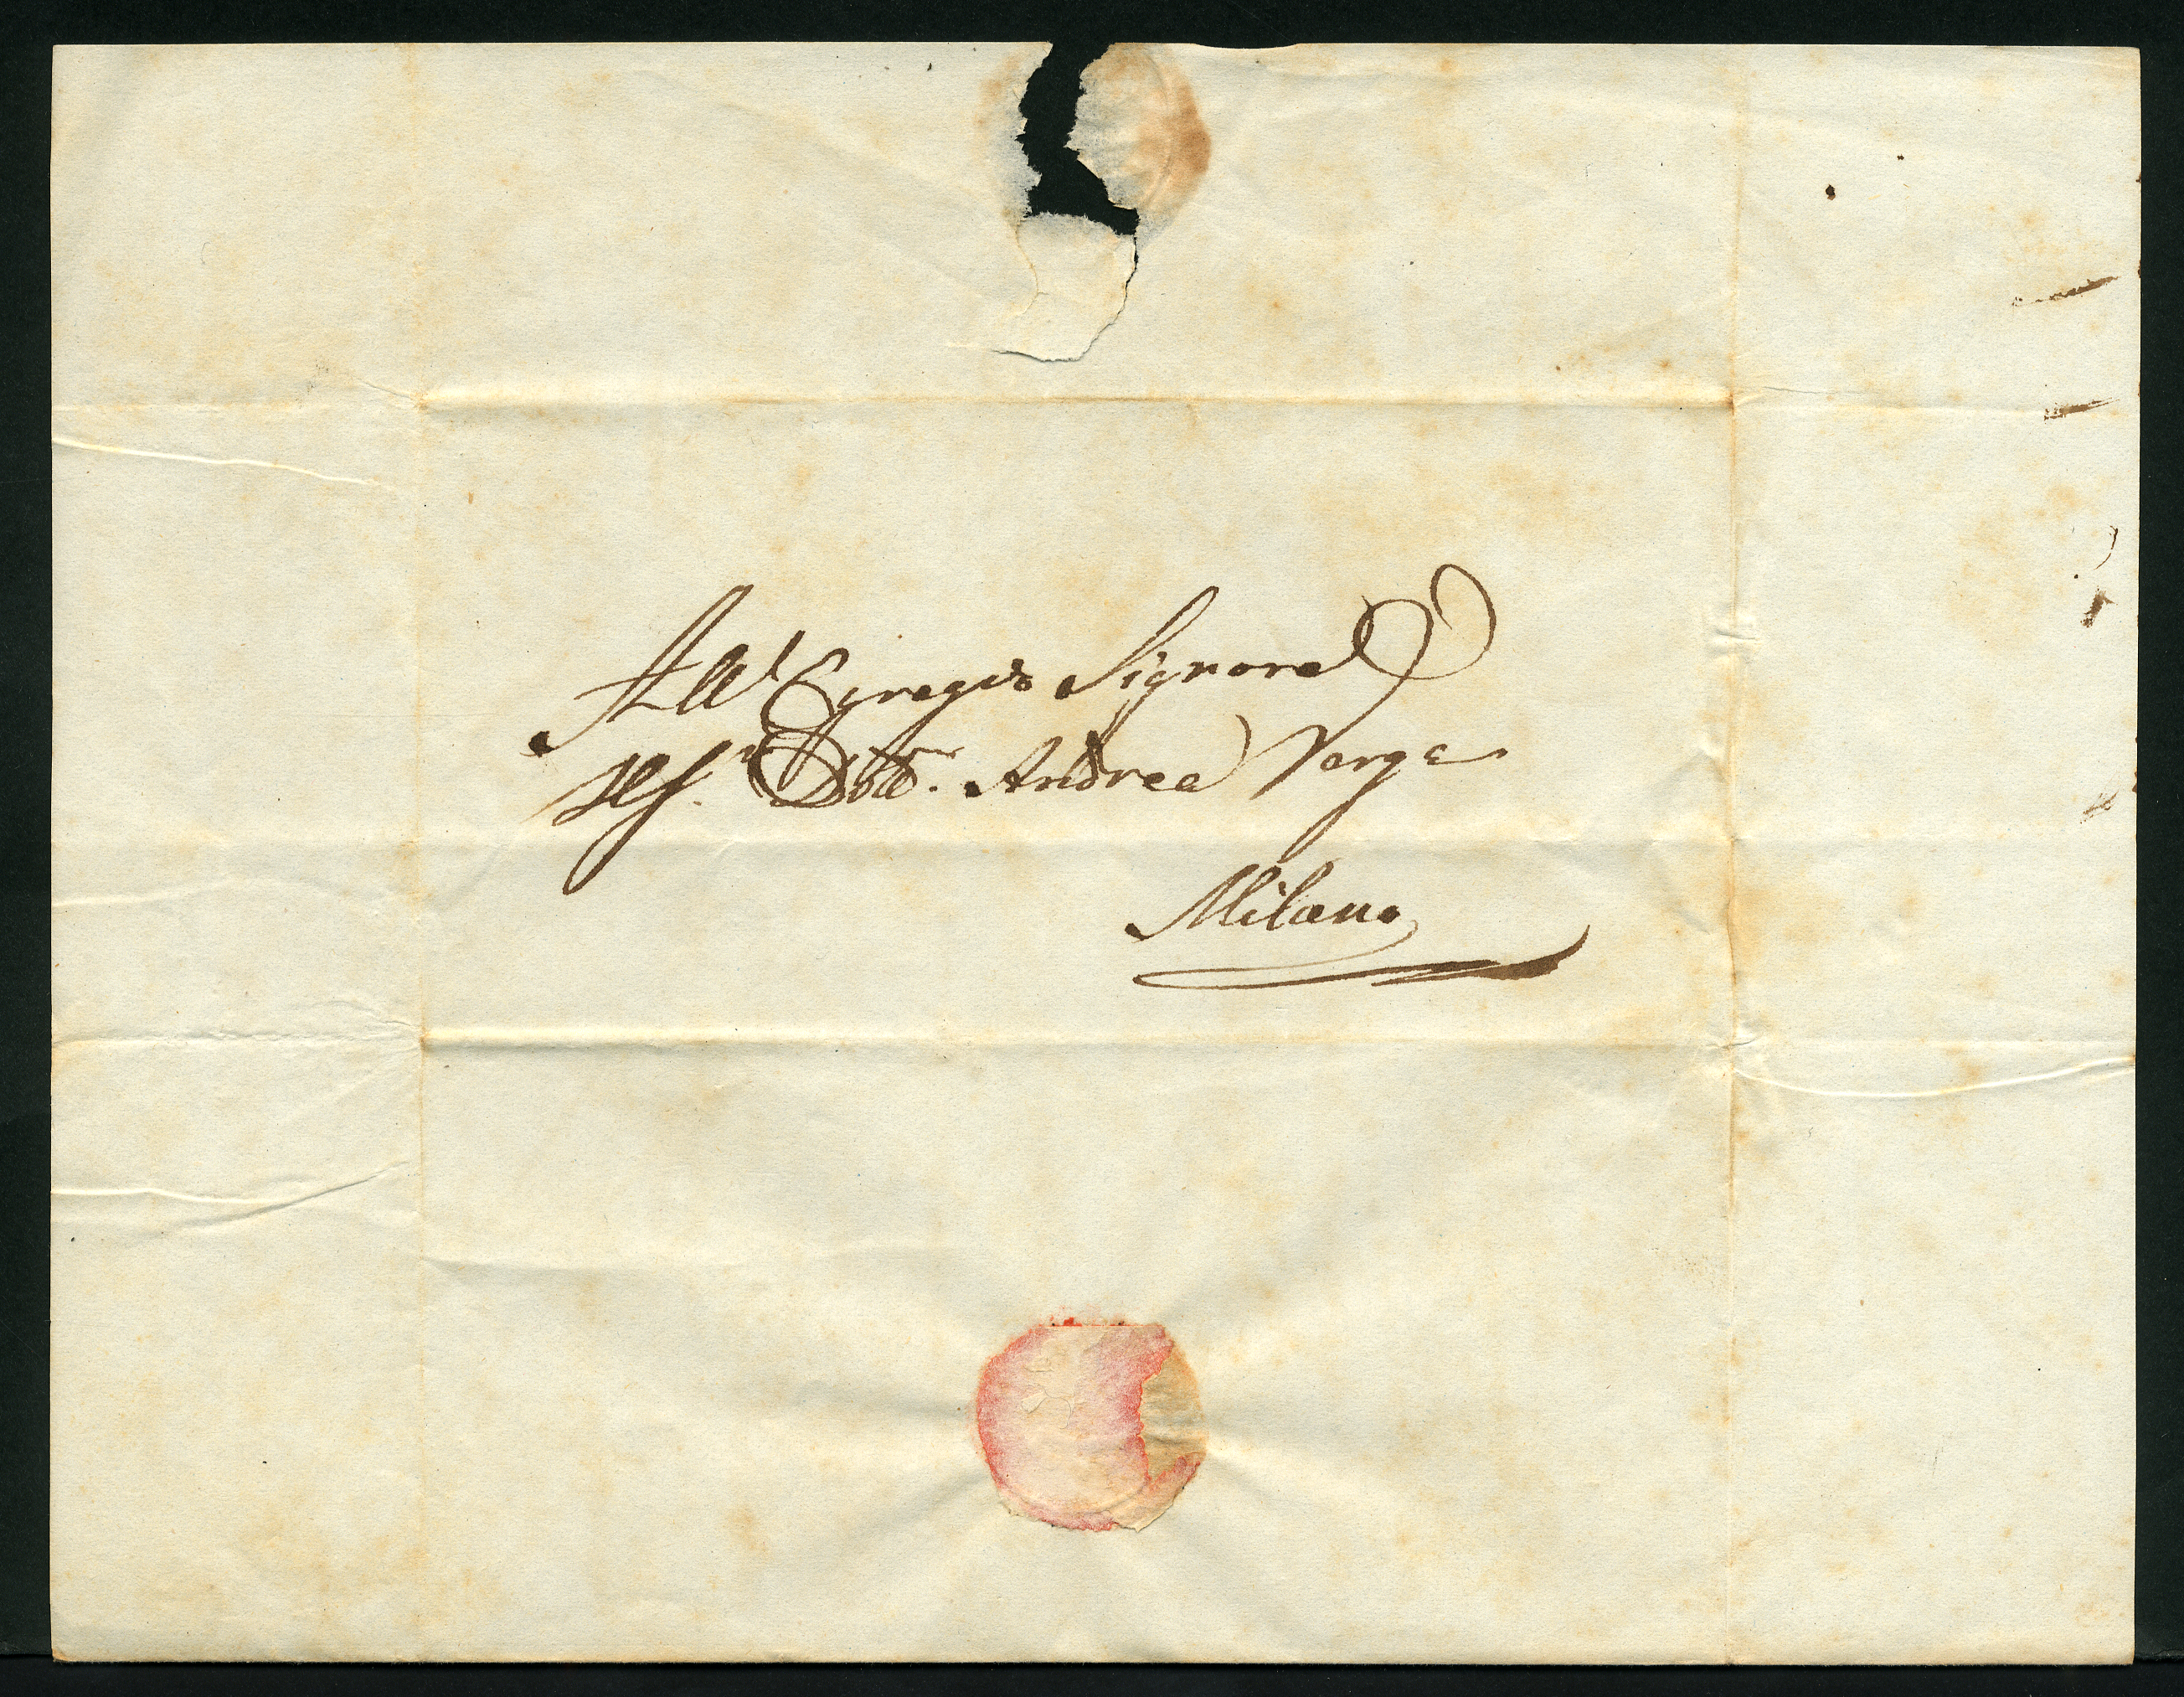 All' Egregio Signore
Il Sr. Dott. Andrea Verga
Milano